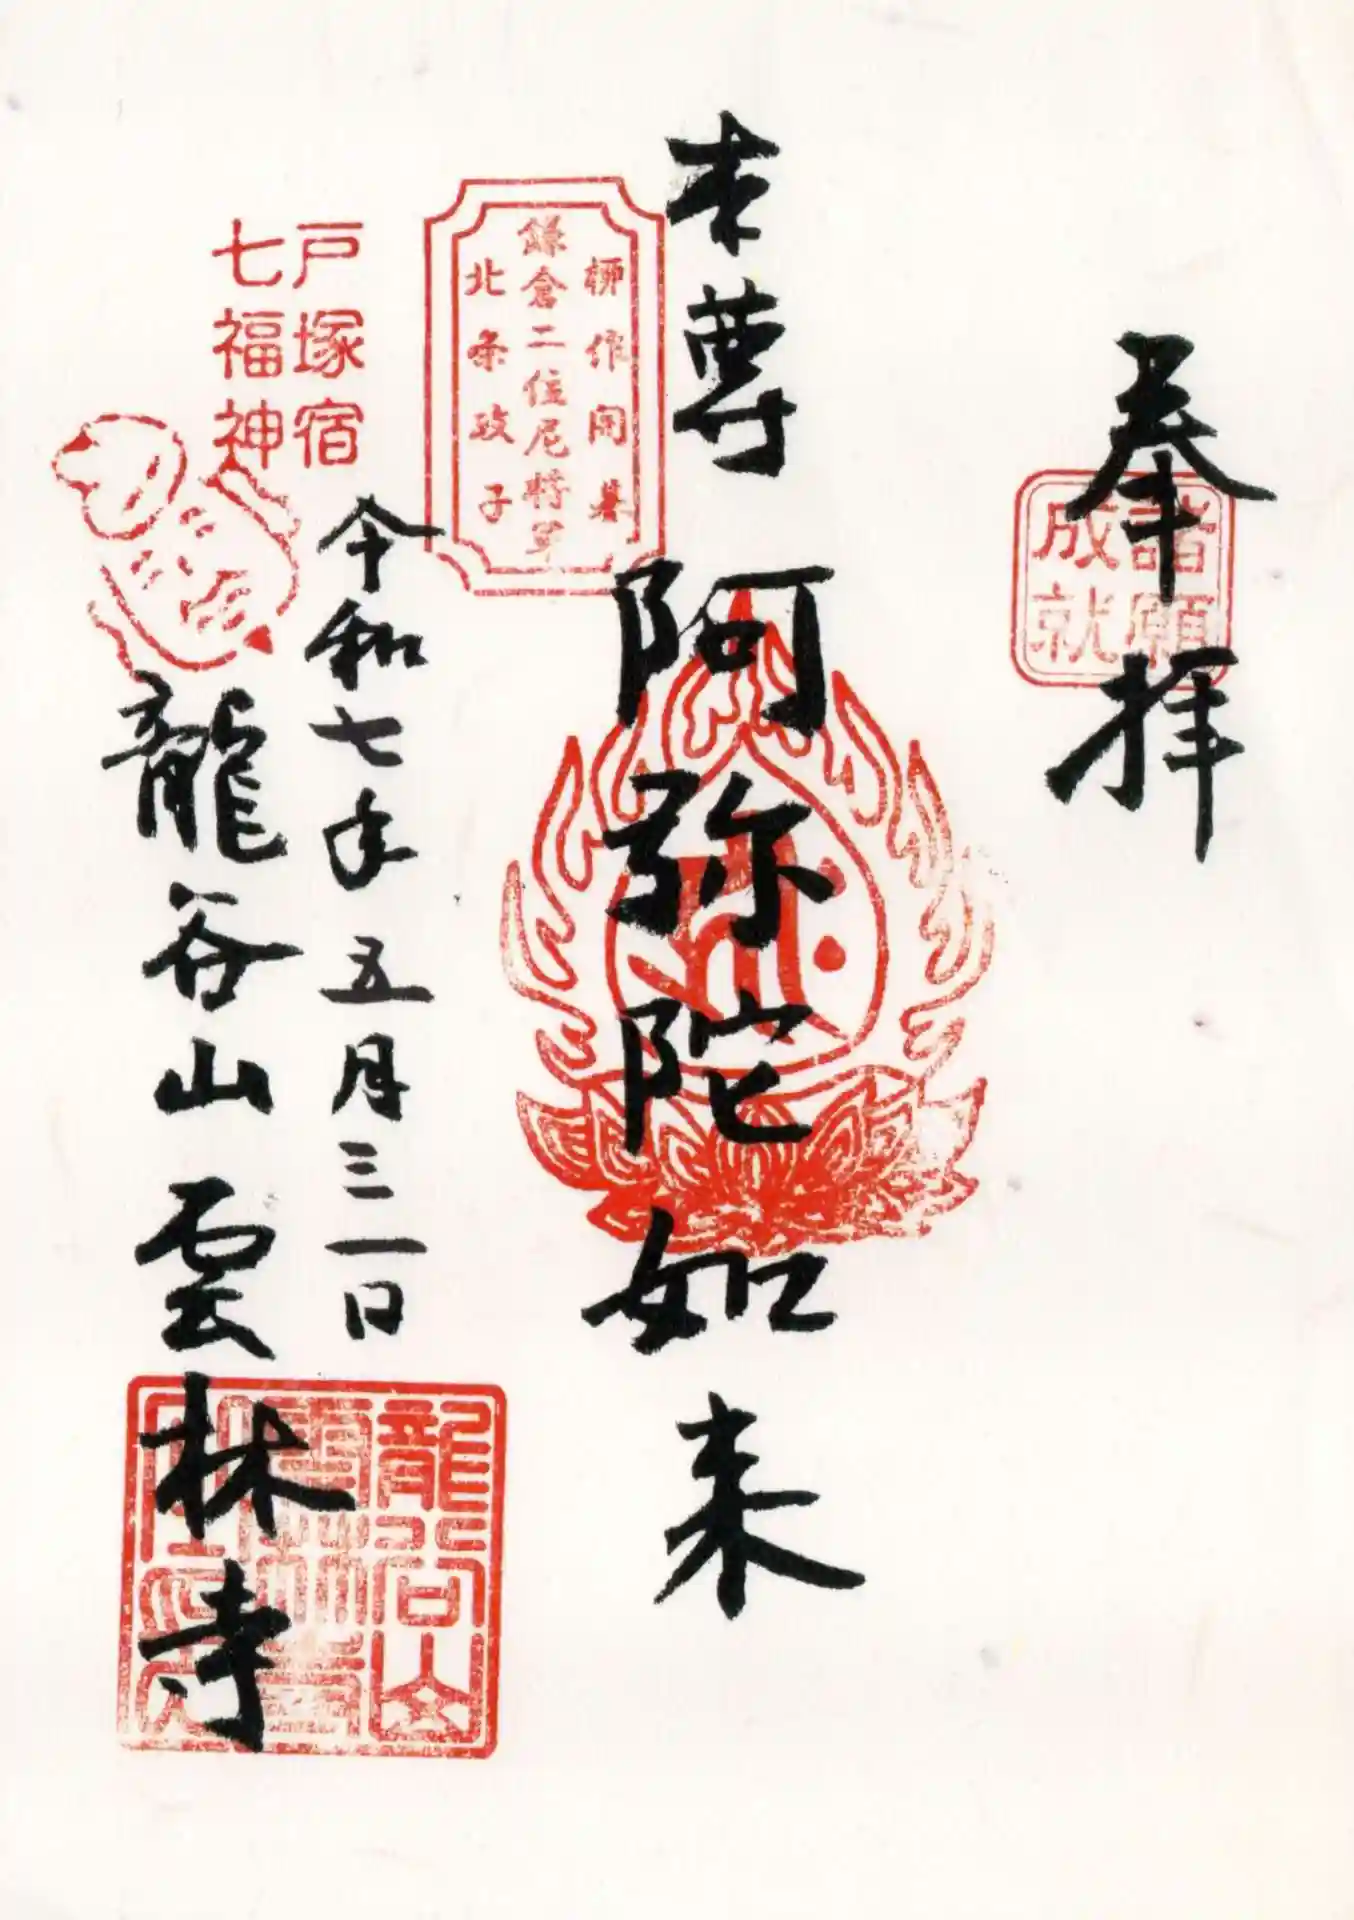 奉拝
諸願
成就
本尊
阿弥陀如来
柳作開基
鎌倉二位尼将軍
北条政子
戸塚宿
七福神
令和七年五月三一日
龍谷山雲林寺
龍谷山
雲林寺